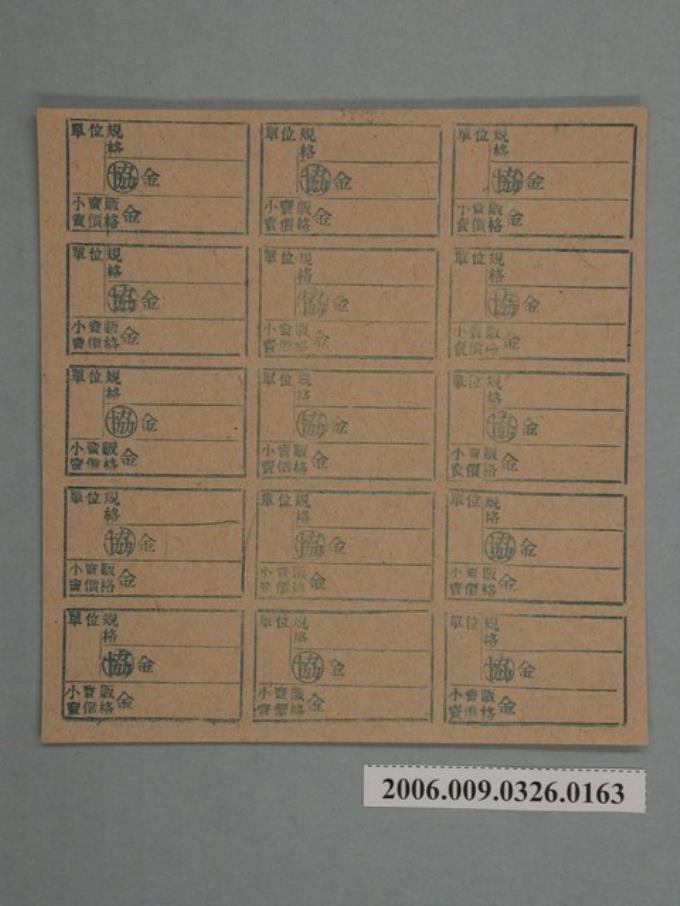 單位規
格
協金
小賣販
賣價格金
單位規
格
協金
小賣販
賣價格金
單位規
格
協金
小賣販
賣價格金
單位規
格
協金
小賣販
賣價格金
單位規
格
協金
小賣販
賣價格金
單位規
格
協金
小賣販
賣價格金
單位規
格
協金
小賣販
賣價格金
單位規
格
協金
小賣販
賣價格金
單位規
格
協金
小賣販
賣價格金
單位規
格
協金
小賣販
賣價格金
單位規
格
協金
小賣販
賣價格金
單位規
格
協金
小賣販
賣價格金
單位規
格
協金
小賣販
賣價格金
單位規
格
協金
小賣販
賣價格金
單位規
格
協金
小賣販
賣價格金
2006.009.0326.0163